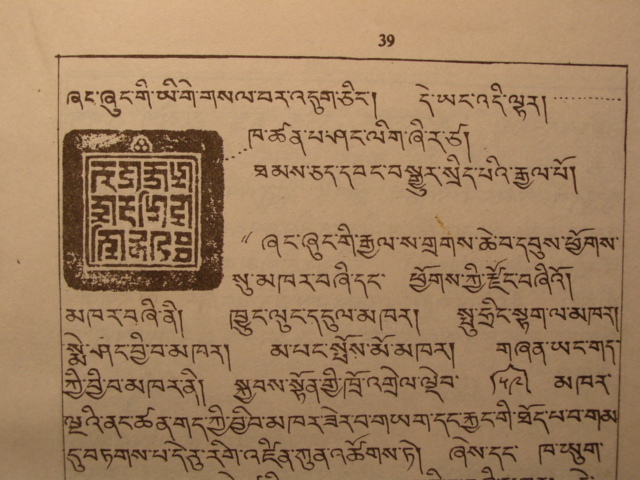 39
ཞང་ཞུང་གི་ཡི་གེ་གསལ་བར་འདུག་ཅིང། དེ་ཡང་འདི་ལྟར།
ཁ་ཚན་པ་ཤང་ལིག་ཞི་ར་ཙ།
ཐམས་ཅད་དབང་བསྒྱུར་སྲིད་པའི་རྒྱལ་པོ།
〃 ཞང་ཞུང་གི་རྒྱལ་ས་གྲགས་ཆེ་བ་དབུས་ཕྱོགས་
སུ་མཁར་བཞི་དང་ ཕྱོགས་ཀྱི་རྫོང་བཞིའོ།
མཁར་བཞི་ནི། ཁྱུང་ལུང་དངུལ་མཁར། སྤུ་ཧྲིང་སྟག་ལ་མཁར།
མ་པང་སྤོས་མོ་མཁར། གཞན་ཡང་གད་
ཀྱི་བྱི་བ་མཁར་ནི། སྐྱབས་སྟོན་གྱི་ཁྲོ་འགྲེལ་ལྡེབ་ མཁར་
ལྔ་འི་ནང་ཚན་གད་ཀྱི་བྱི་བ་མཁར་ཟེར་བ་གཡག་དང་རྐྱང་གི་ཐོད་པ་བ་གམ་
དུ་བཏགས་པ་དེ་རུ་རིགེ་འཛིན་ཀུན་འཚོགས་ཏེ། ཞེས་དང་